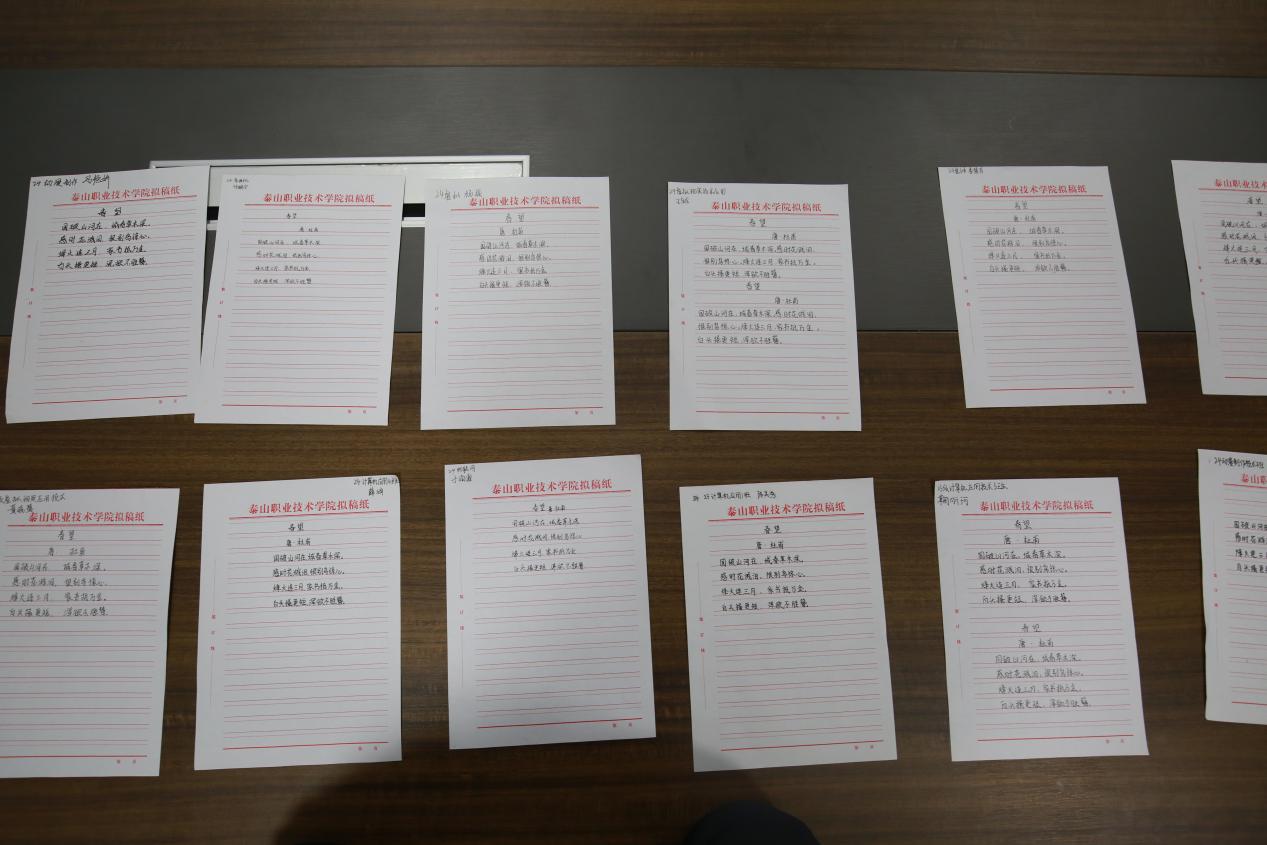 24动漫制作
泰山职业技术学院拟稿纸
春望
国破山河在,城春草木深。
感时花溅泪,恨别鸟惊心。
烽火连三月,家书抵万金。
白头搔更短,浑欲不胜簪。
装订线
第 页
泰山职业技术学院拟稿纸
春望
唐·杜甫
国破山河在,城春草木深
感时花溅泪,恨别鸟惊心。
烽火连三月,家书抵万金。
白头搔更短,浑欲不胜簪
装订线
第 页
24虚拟
泰山职业技术学院拟稿纸
春望
唐·杜甫
国破山河在,城春草木深。
感时花溅泪,恨别鸟惊心。
烽火连三月,家书抵万金
白头搔更短,浑欲不胜簪。
装订线
第 页
24虚拟现实技术应用
泰山职业技术学院拟稿纸
春望
唐·杜甫
国破山河在,城春草木深,感时花溅泪,
恨别鸟惊心,烽火连三月,家书抵万金,
白头搔更短,浑欲不胜簪。
春望
唐·杜甫
国破山河在,城春草木深,感时花溅泪,
恨别鸟惊心,烽火连三月,家书抵万金,
白头搔更短,浑欲不胜簪。
装订线
第 页
泰山职业技术学院拟稿纸
春望
唐·杜甫
国破山河在,城春草木深。
感时花溅泪,恨别鸟惊心。
烽火连三月,家书抵万金。
白头搔更短,浑欲不胜簪。
装订线
第 页
泰山职业技
春望
国破山河在,城春
感时花溅泪,恨
烽火连三月,家
白头搔更短,
装订线
虚拟现实应用技术
泰山职业技术学院拟稿纸
春望
唐 杜甫
国破山河在 城春草木深。
感时花溅泪,恨别鸟惊心。
烽火连三月,家书抵万金。
白头搔更短,浑欲不胜簪。
第 页
24计算机应用
泰山职业技术学院拟稿纸
春望
唐·杜甫
国破山河在,城春草木深。
感时花溅泪,恨别鸟惊心。
烽火连三月,家书抵万金。
白头搔更短,浑欲不胜簪。
装订线
第 页
24物联网
泰山职业技术学院拟稿纸
春望 唐·杜甫
国破山河在,城春草木深
感时花溅泪,恨别鸟惊心
烽火连三月,家书抵万金
白头搔更短,浑欲不胜簪
装订线
第 页
计算机应用
泰山职业技术学院拟稿纸
春望
唐·杜甫
国破山河在,城春草木深。
感时花溅泪,恨别鸟惊心。
烽火连三月,家书抵万金。
白头搔更短,浑欲不胜簪。
装订线
第 页
计算机应用技术
泰山职业技术学院拟稿纸
春望
唐·杜甫
国破山河在,城春草木深。
感时花溅泪,恨别鸟惊心。
烽火连三月,家书抵万金。
白头搔更短,浑欲不胜簪。
春望
唐·杜甫
国破山河在,城春草木深。
感时花溅泪,恨别鸟惊心。
烽火连三月,家书抵万金,
白头搔更短,浑欲不胜簪。
装订线
第 页
24动漫制作技术
泰山职业
国破山河在
感时花溅泪
烽火连三
白头搔
装订线